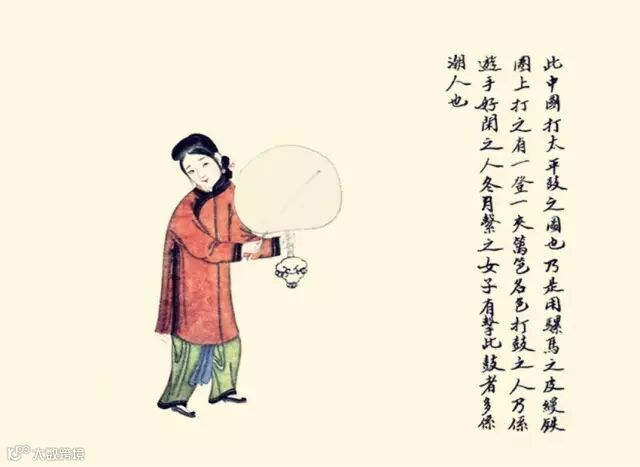 此中國打太平鼓之圖也乃是用騾馬之皮縵鉄
圈上打之有一登一夹篱笆名色打鼓之人乃係
遊手好閑之人冬月繫之女子有擊此鼓者多係
湖人也
大数跨境